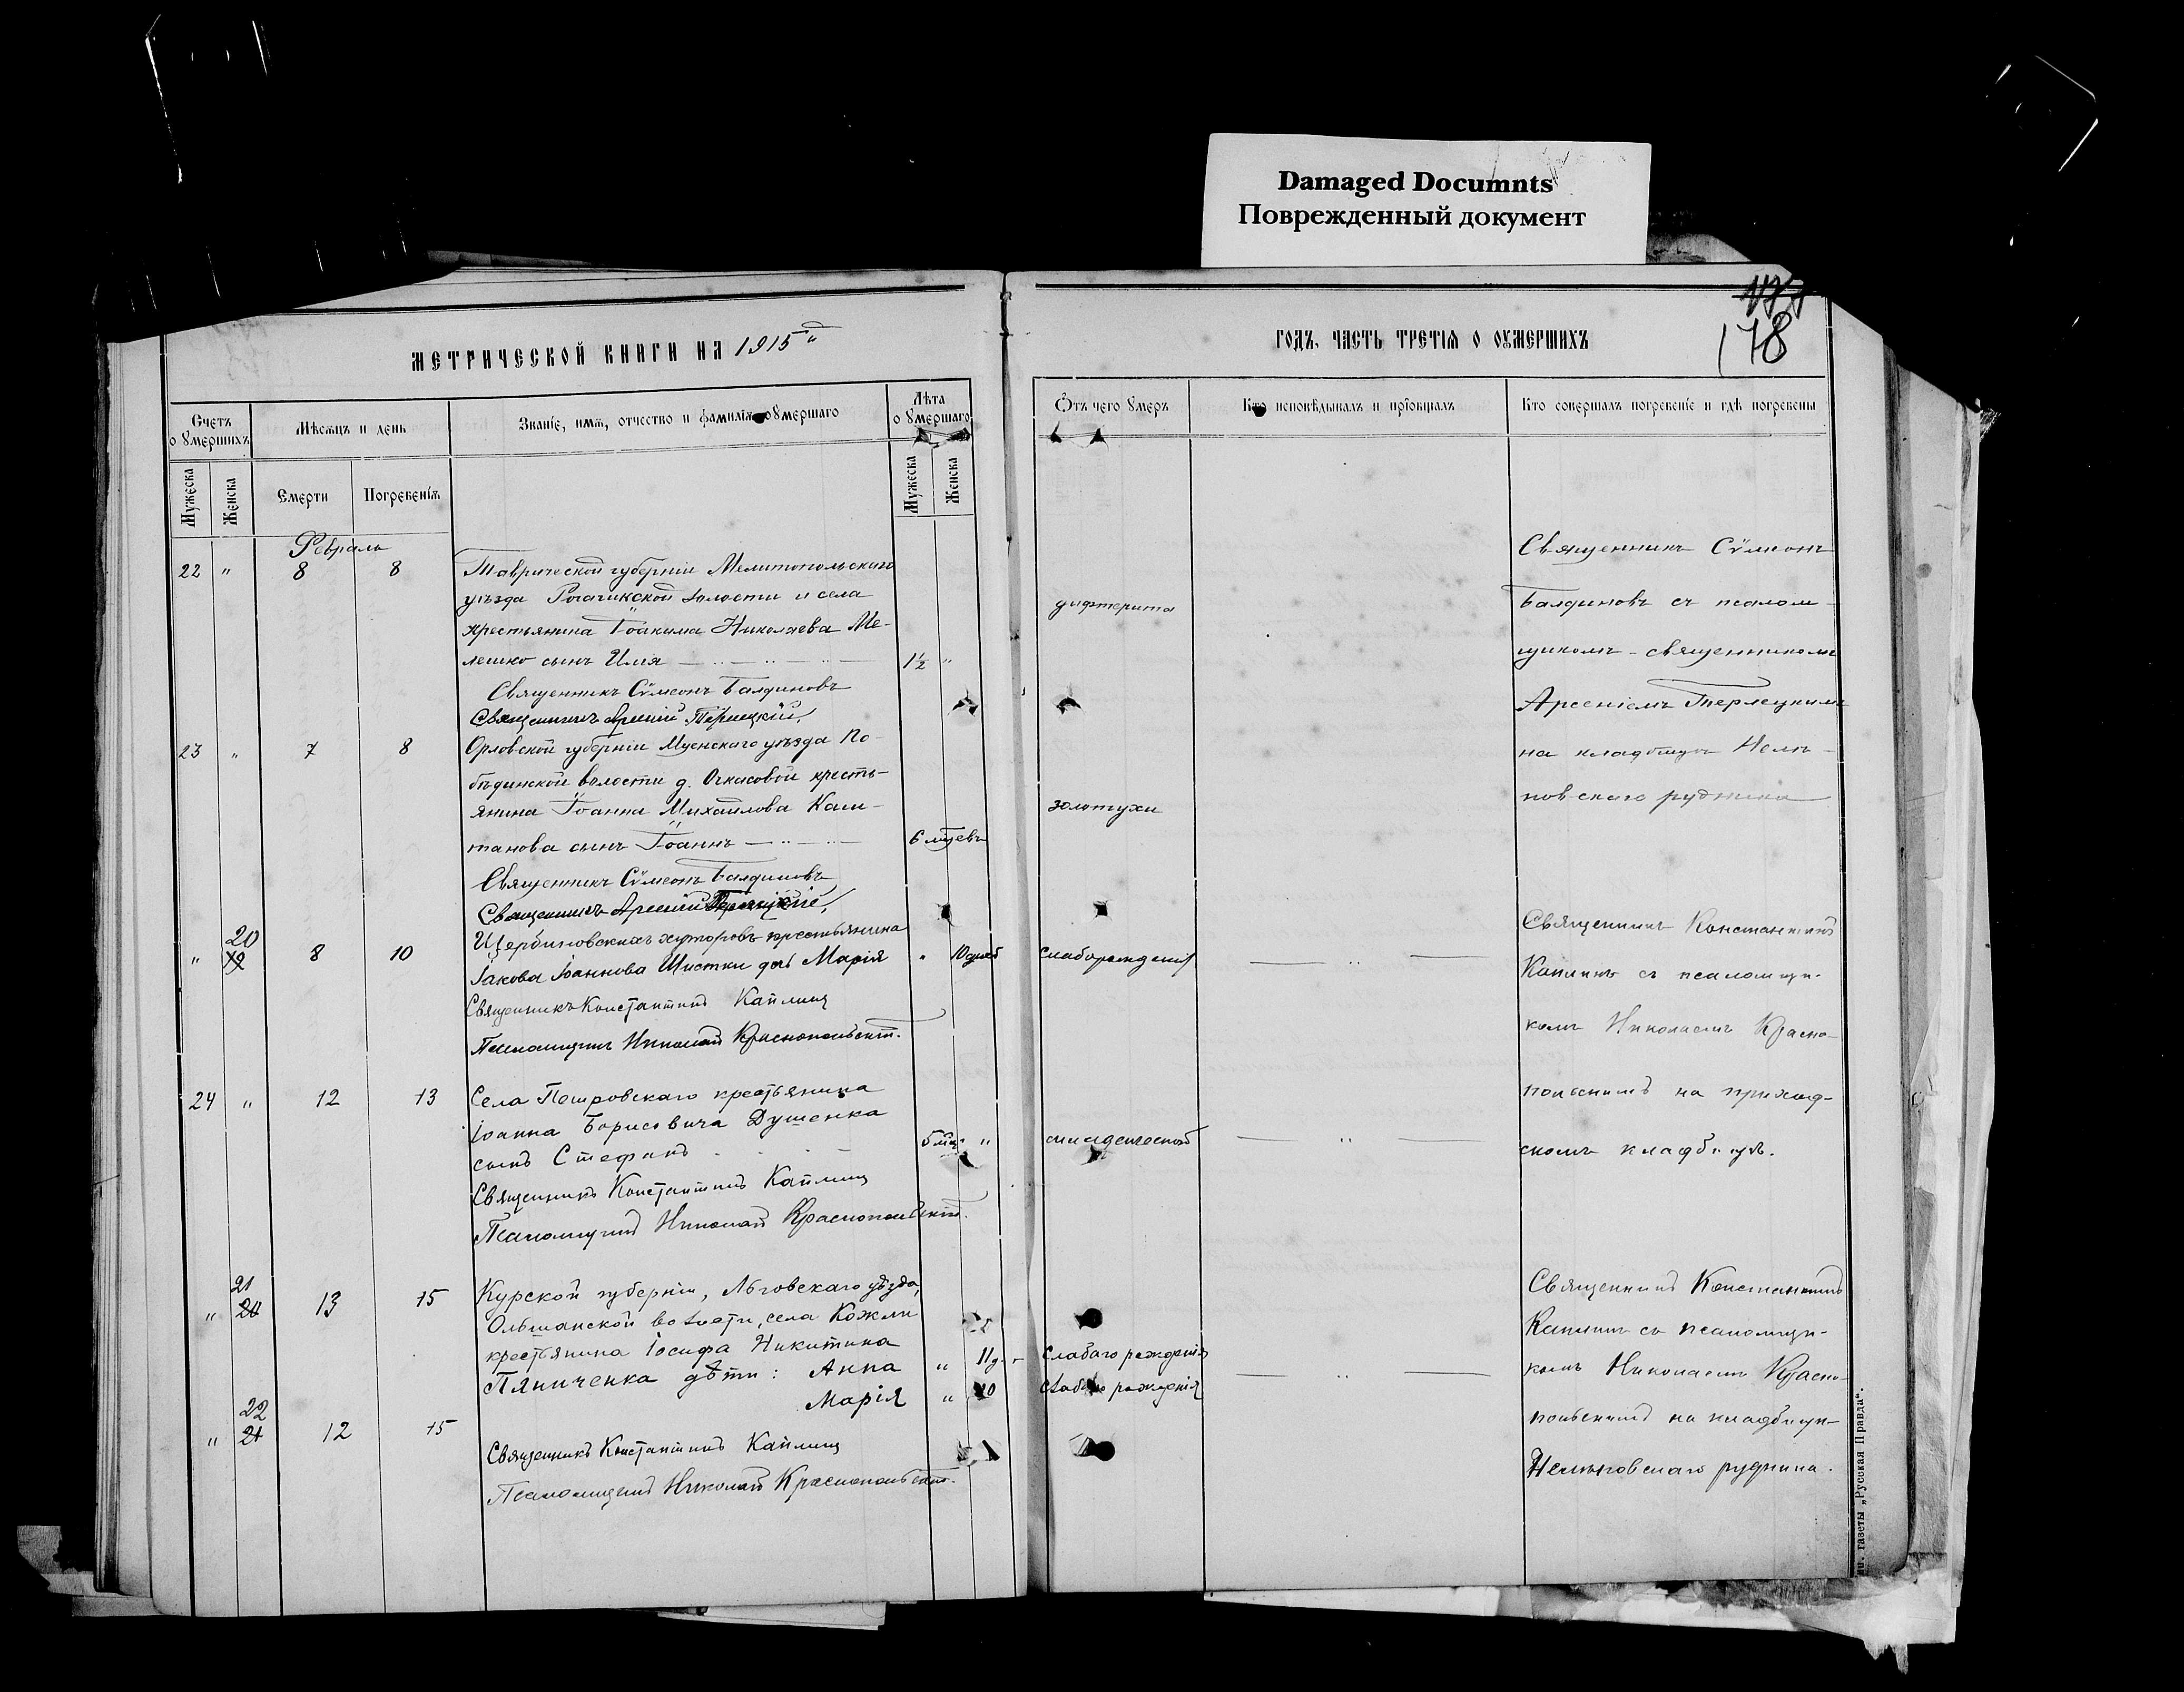 Damaged Documnts
Поврежденный документ
177
178
МЕТРИЧЕСКОЙ КНИГИ НА 1915й
ГОДЪ, ЧАСТЬ ТРЕТІѦ О ОУМЕРШИХЪ
Счетъ оумершихъ
Мѣсяцъ и день
Званіе, имѧ, отчество и фамиліѧ оумершаго
Лѣта оумершаго
Отъ чего умеръ
Кто исповѣдывалъ и пріобщалъ
Кто совершалъ погребеніе и гдѣ погребены
Мужеска
Женска
Смерти
Погребеніѧ
Мужеска
Женска
Февраль
22 " 8 8 Таврической губерніи Мелитопольскаго
уѣзда Рогачикской волости и села
крестьянина Іоакима Николаева Ме-
лешко сынъ Илія 1½ "
дифтерита
Священникъ Сѵмеонъ Балдиновъ
Священникъ Арсеній Терлецкій
Священникъ Сѵмеонъ
Балдиновъ съ псалом-
щикомъ-священникомъ
Арсеніемъ Терлецкимъ
на кладбищѣ Нелѣ-
повскаго рудника
23 " 7 8 Орловской губерніи Мценскаго уѣзда По-
бѣдинской волости д. Очкасовой кресть-
янина Іоанна Михайлова Каш-
танова сынъ Іоаннъ 6 мцевъ
золотухи
Священникъ Сѵмеонъ Балдиновъ
Священникъ Арсеній Терлецкій
" 20 19 8 10 Щербиновскихъ хуторовъ крестьянина
Іакова Іоаннова Шистки дочь Марія " 10 дней
слаборожденія
Священникъ Константинъ Каплинъ
Псаломщикъ Николай Краснопольскій.
Священникъ Константинъ
Каплинъ съ псаломщи-
комъ Николаемъ Красно-
польскимъ на приход-
скомъ кладбищѣ.
24 " 12 13 Села Петровскаго крестьянина
Іоанна Борисовича Душенка
сынъ Стефанъ 5 мцъ "
младенческой
Священникъ Константинъ Каплинъ
Псаломщикъ Николай Краснопольскій.
" 21 20 13 15 Курской губерніи, Льговскаго уѣзда,
Ольшанской волости, села Кожли
крестьянина Іосифа Никитина
Пяниченка дѣти: Анна " 11 д.
слабаго рожденія
Марія " 10
слабаго рожденія
" 22 21 12 15
Священникъ Константинъ Каплинъ
Псаломщикъ Николай Краснопольскій.
Священникъ Константинъ
Каплинъ съ псаломщи-
комъ Николаемъ Красно-
польскимъ на кладбищѣ
Нелѣповскаго рудника.
газеты „Русская Правда“.